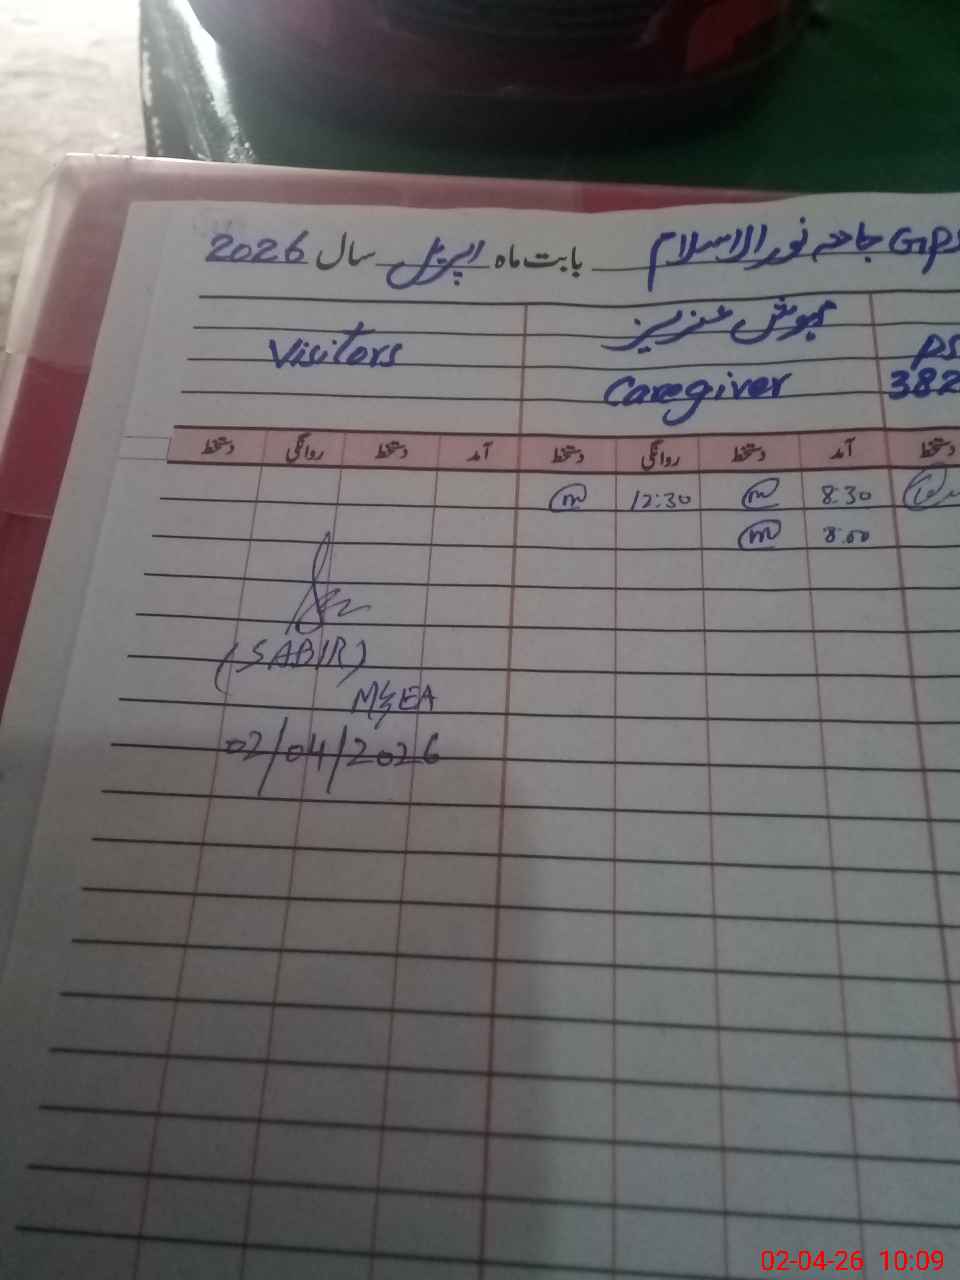 GPS جامعہ نورالاسلام بابت ماہ اپریل سال 2026
مہوش عزیز
Visitors
Caregiver
382
دستخط آمد دستخط روانگی دستخط آمد دستخط روانگی دستخط
8:30 12:30
8:00
(SABIR)
M&EA
02/04/2026
02-04-26 10:09